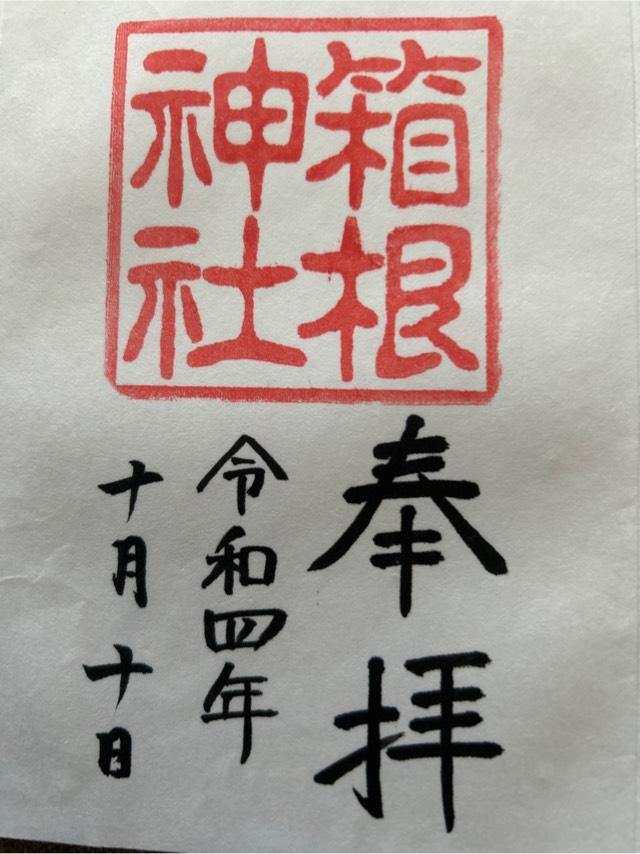 箱根
神社
奉拝
令和四年
十月十日